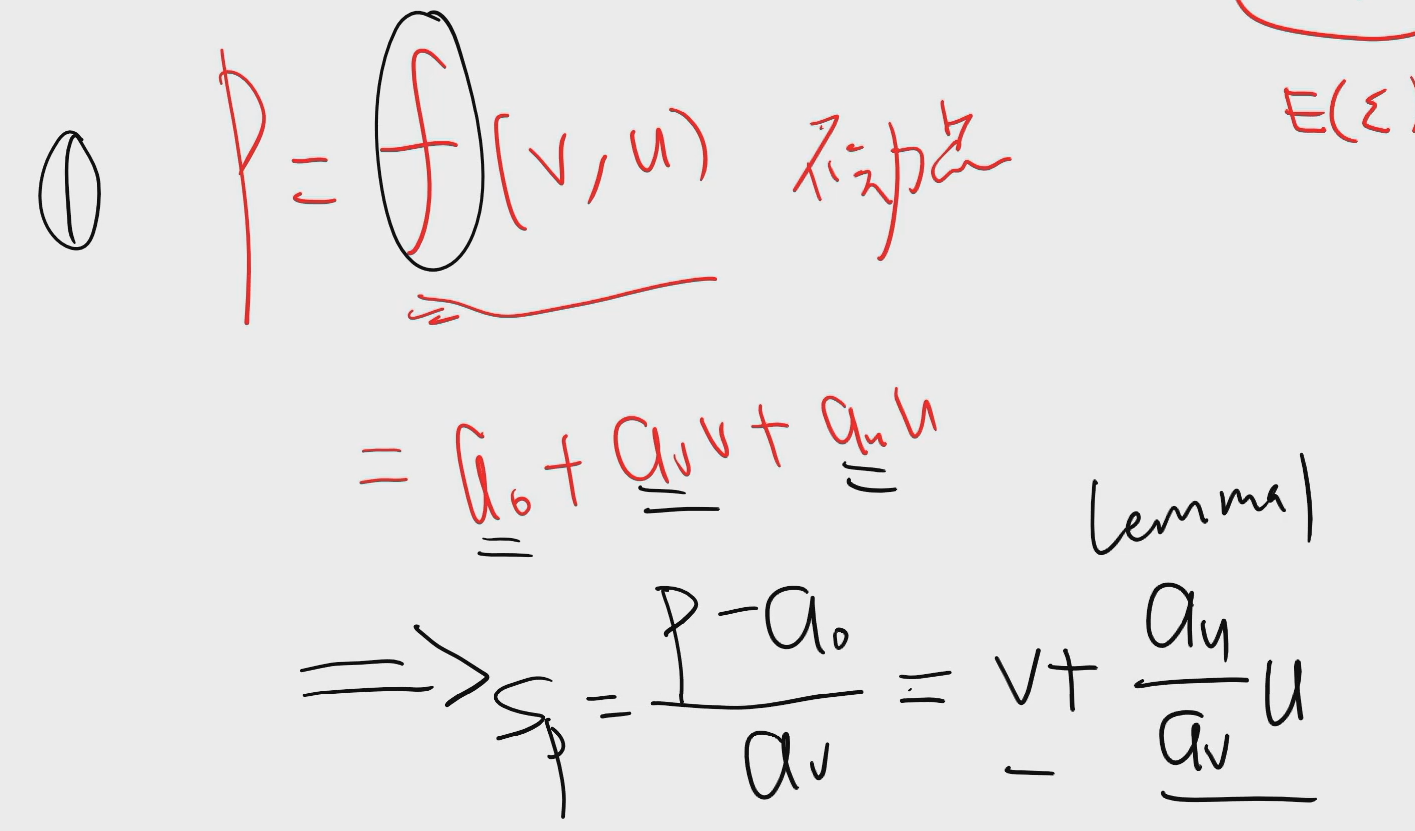 ① P = f(v, u) 不动点
E(ε)
= a₀ + aᵥv + aᵤu
Lemma 1
⟹ Sₚ = (P - a₀) / aᵥ = v + (aᵤ / aᵥ) u